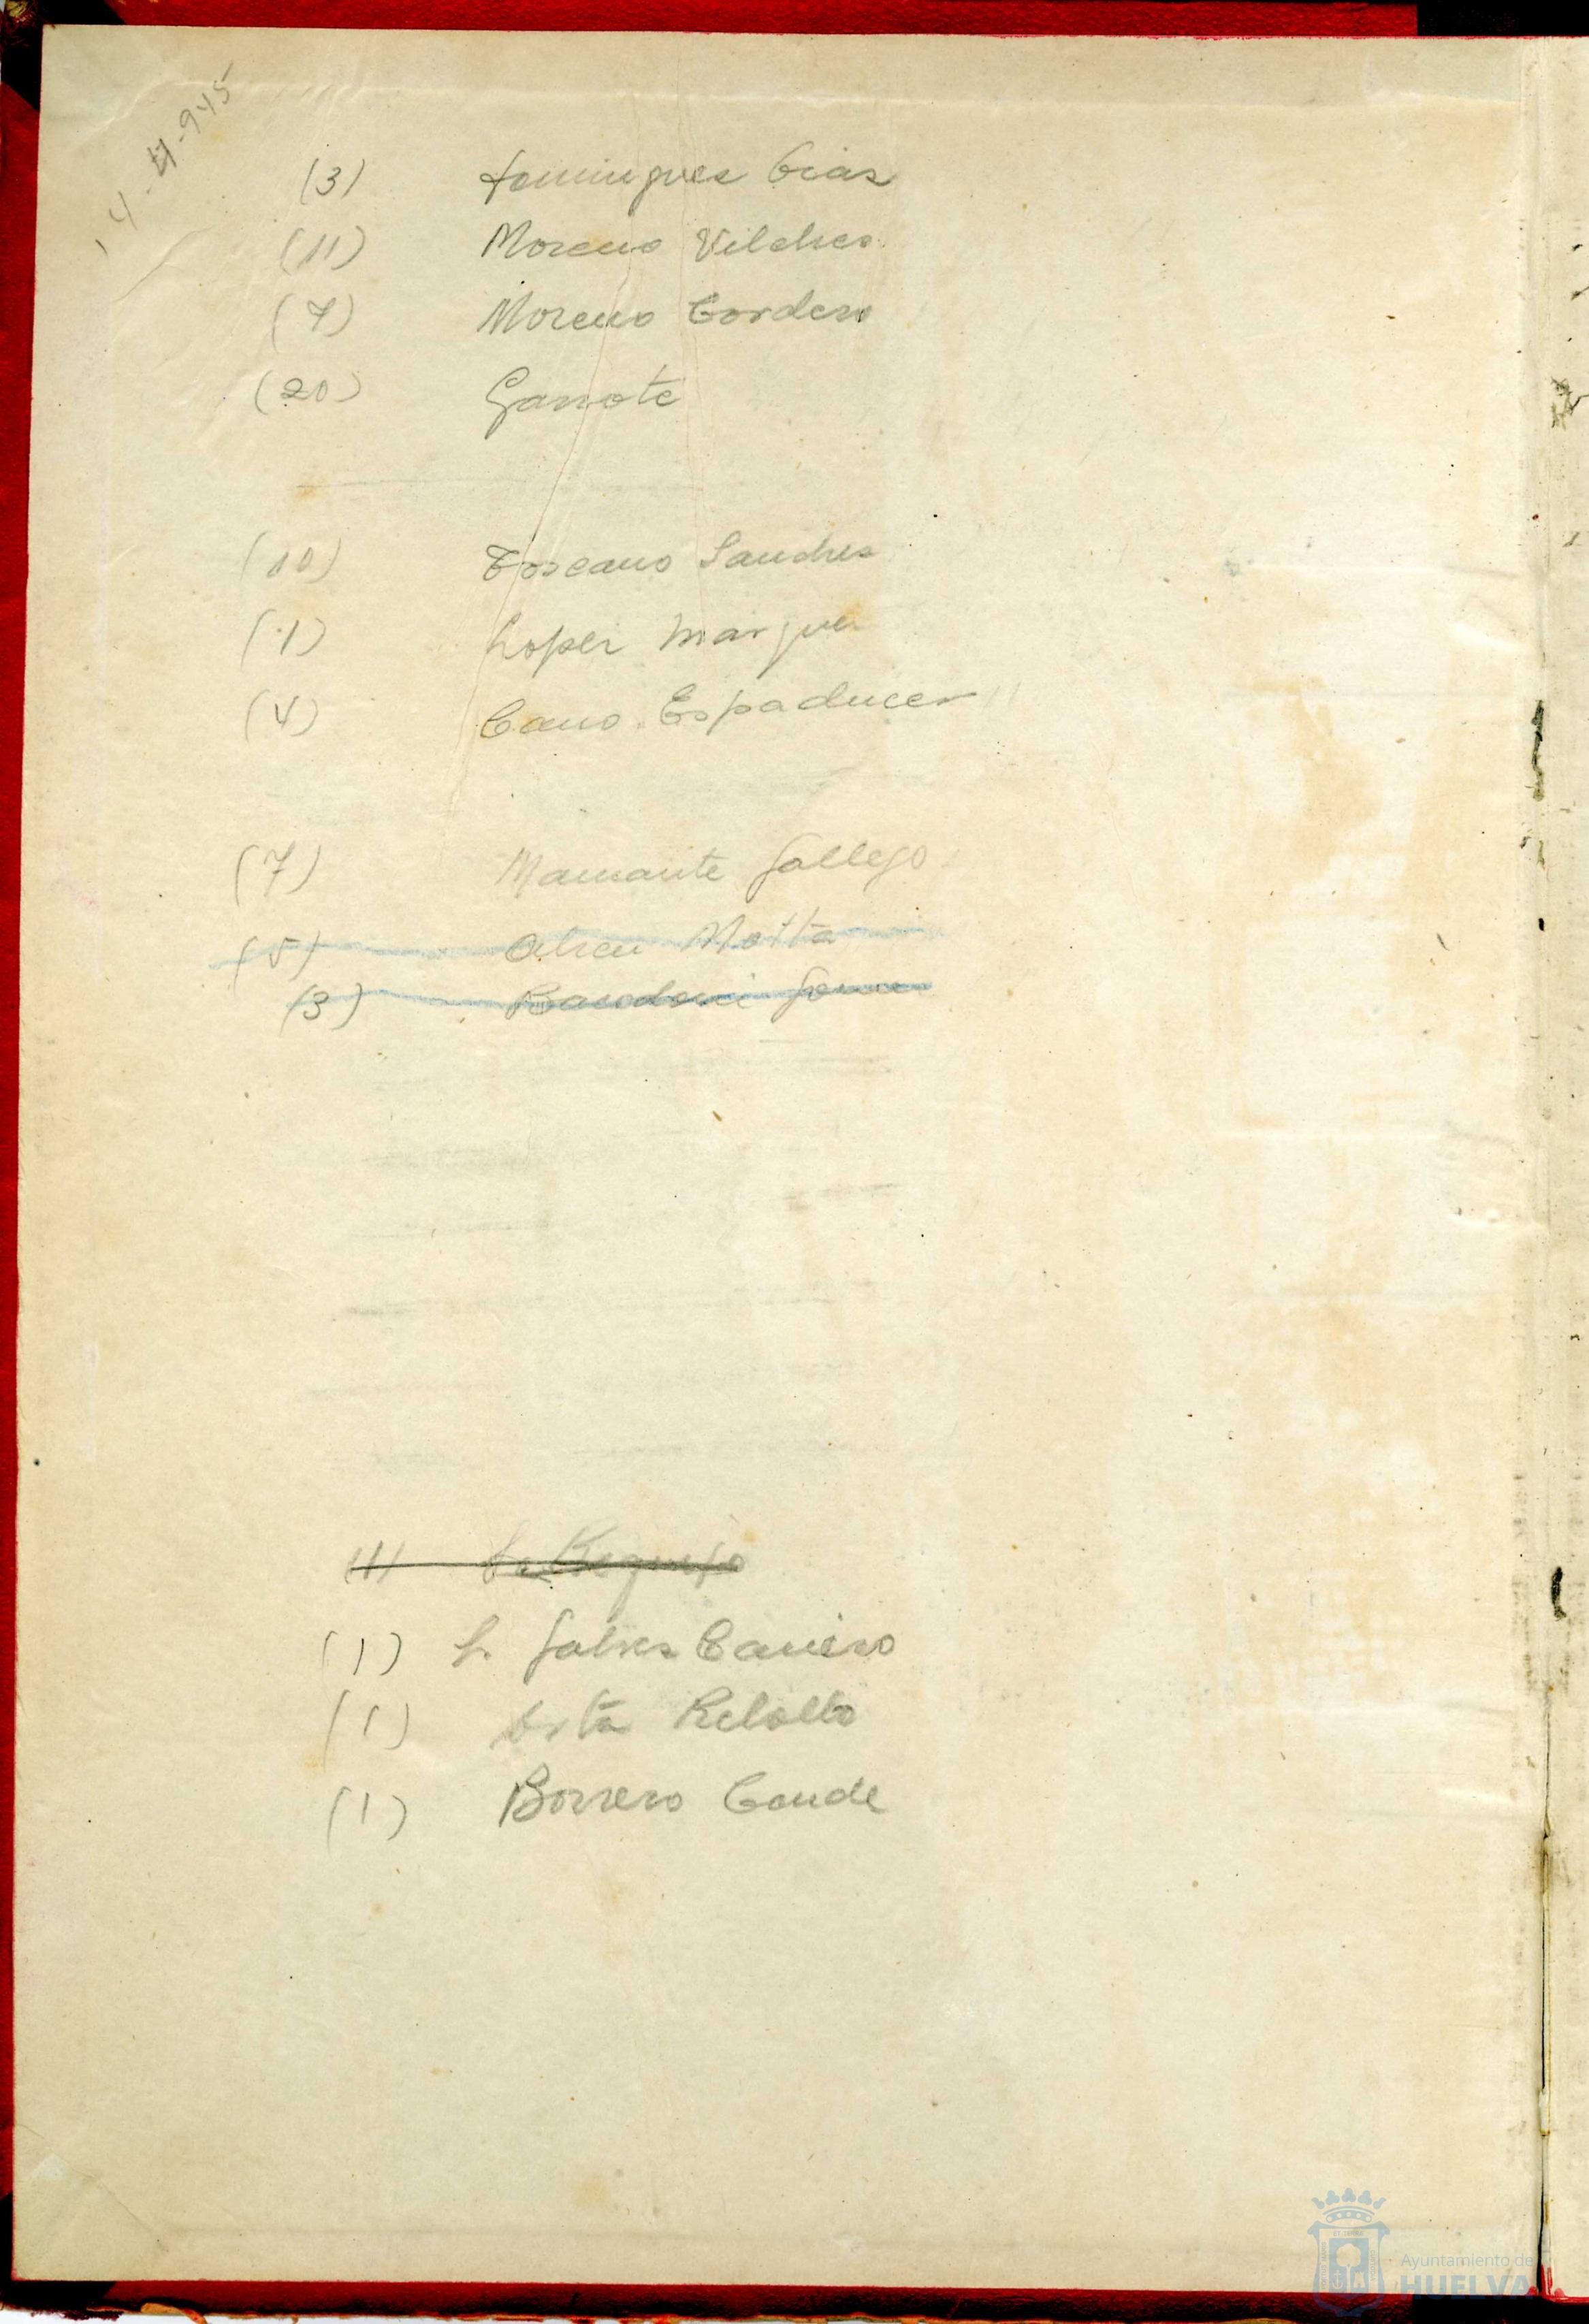 14-4-945
(3) Domingues Crias
(11) Moreno Vilches
(7) Moreno Cordero
(20) Garrote
(10) Toscano Sanches
(1) Loper Marque
(4) Cano Espaducer
(7) Mamante Gallego
(5) Abreu Motta
(3)
(1) Requejo
(1) L. Galves Canieso
(1) Orta Rebollo
(1) Borrero Conde
Ayuntamiento de
HUELVA